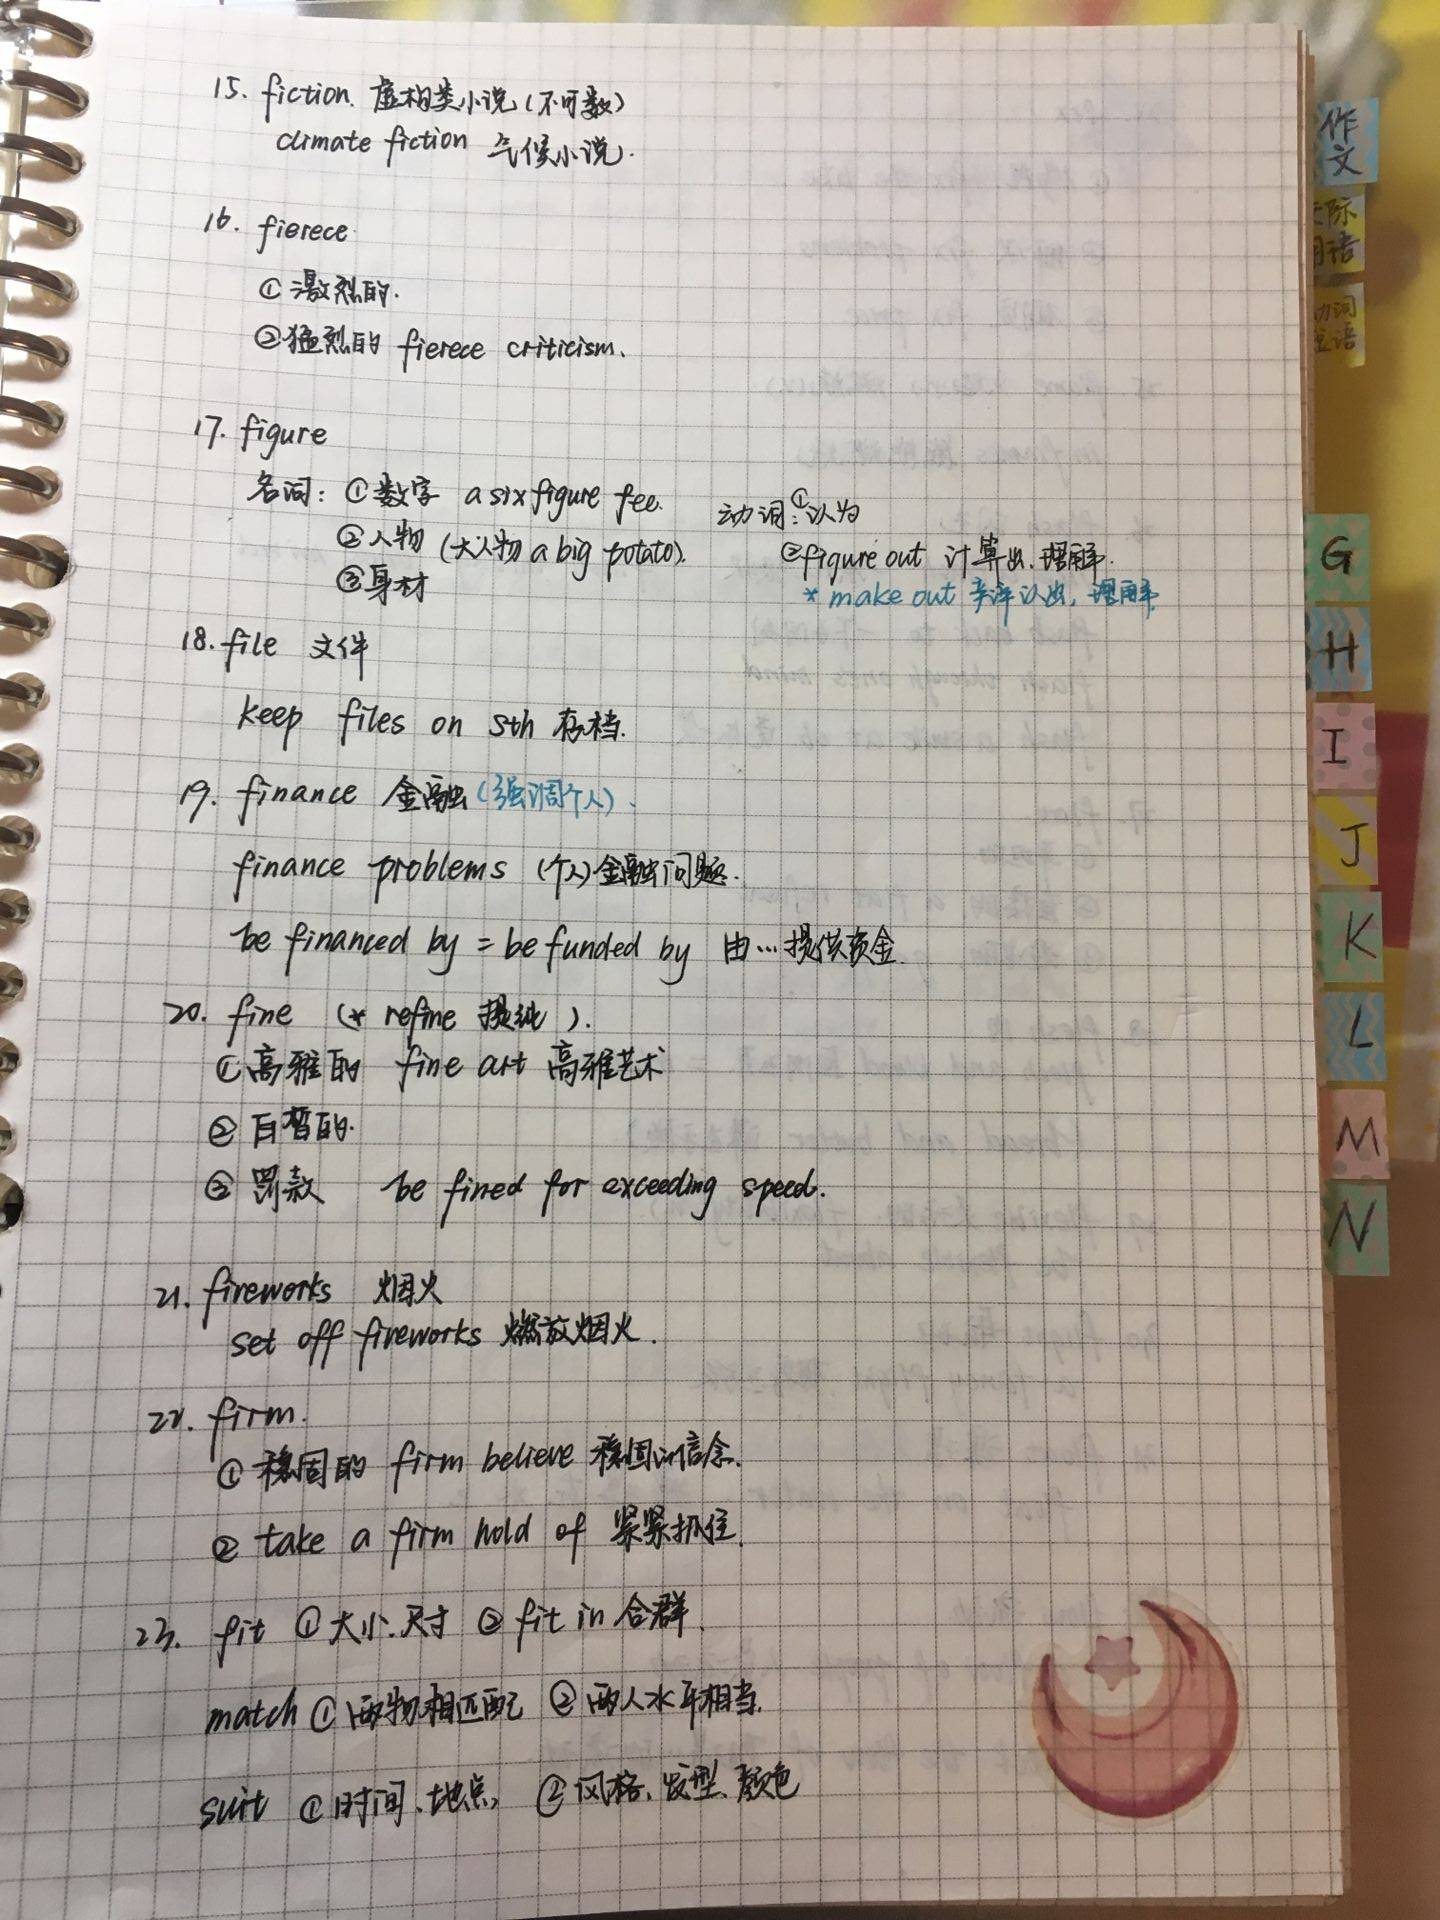 15. fiction. 虚构类小说(不可数)
climate fiction 气候小说.
16. fierece
①激烈的.
②猛烈的 fierece criticism.
17. figure
名词: ①数字 a six figure fee. 动词:①认为
②人物 (大人物 a big potato). ②figure out 计算出.理解.
③身材 * make out 辨认出, 理解.
18. file 文件
keep files on sth 存档.
19. finance 金融(强调个人).
finance problems (个人)金融问题.
be financed by = be funded by 由…提供资金.
20. fine (* refine 提纯).
①高雅的 fine art 高雅艺术
②白皙的.
③罚款 be fined for exceeding speed.
21. fireworks 烟火
set off fireworks 燃放烟火.
22. firm.
①稳固的 firm believe 稳固的信念.
② take a firm hold of 紧紧抓住.
23. fit ①大小.尺寸 ② fit in 合群.
match ①两物相匹配 ②两人水平相当.
suit ①时间、地点, ②风格、发型、颜色
作文
际
用语
动词
短语
G
H
I
J
K
L
M
N